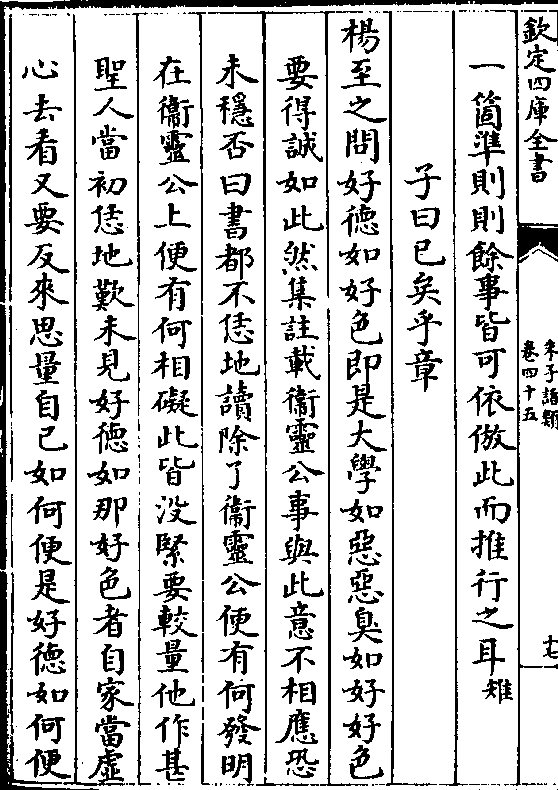 欽定四庫全書
朱子語類
卷四十五
十七
一箇準則則餘事皆可依倣此而推行之耳雉
子曰已矣乎章
楊至之問好德如好色即是大學如惡惡臭如好好色
要得誠如此然集註載衞靈公事與此意不相應恐
未穩否曰書都不恁地讀除了衞靈公便有何發明
在衞靈公上便有何相礙此皆没緊要較量他作甚
聖人當初恁地歎未見好德如那好色者自家當虛
心去看又要反來思量自己如何便是好德如何便